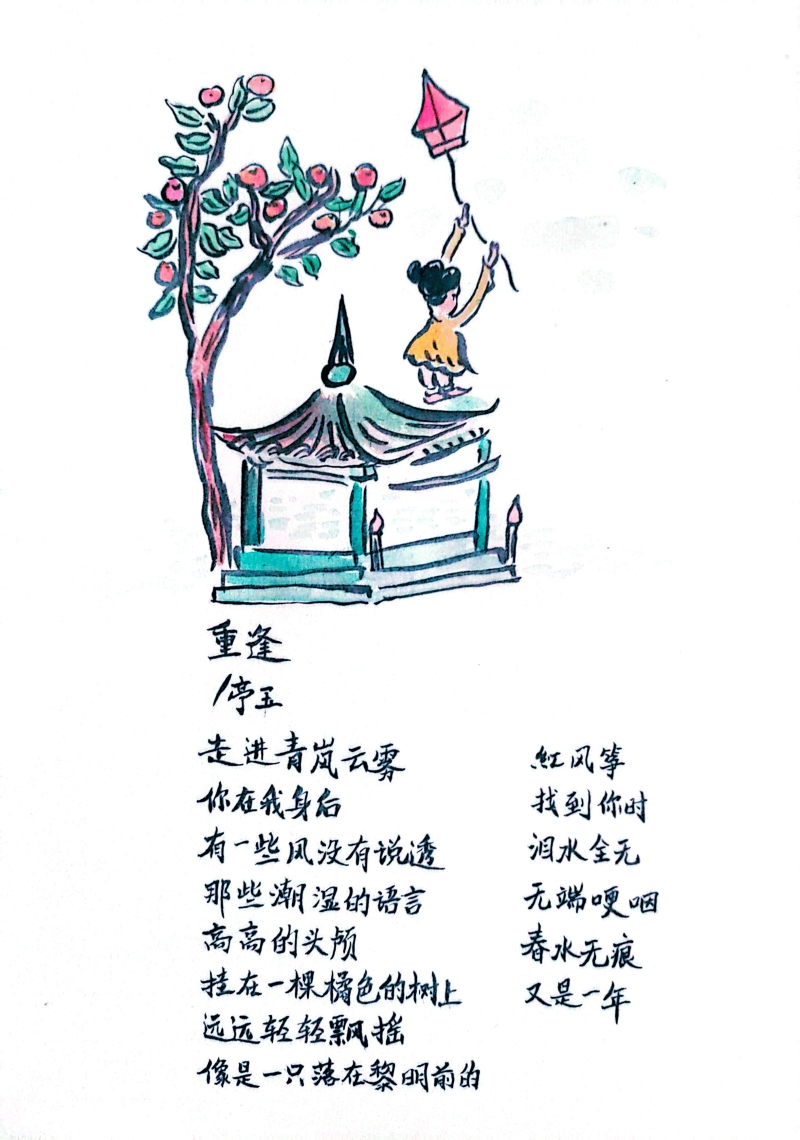 重逢
/亭玉
走进青岚云雾
你在我身后
有一些风没有说透
那些潮湿的语言
高高的头颅
挂在一棵橘色的树上
远远轻轻飘摇
像是一只落在黎明前的
红风筝
找到你时
泪水全无
无端哽咽
春水无痕
又是一年